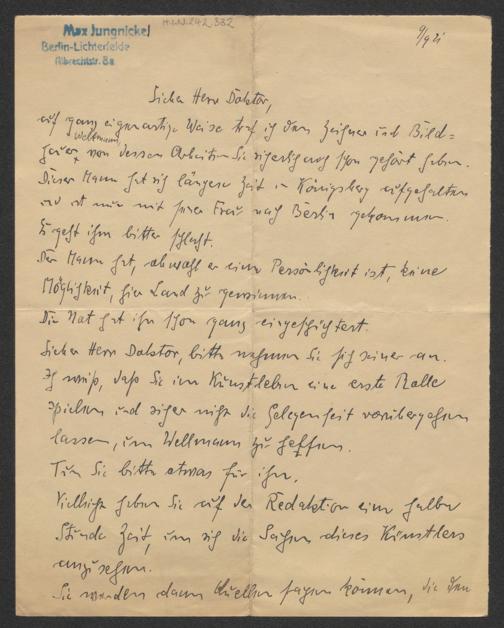 Max Jungnickel
Berlin-Lichterfelde
Albrechtstr. 8a
H.I.N. 242.332
9/9 21
Lieber Herr Doktor,
auf ganz eigenartige Weise traf ich den Zeichner und Bild=
hauer Wellmann, von dessen Arbeiten Sie sicherlich auch schon gehört haben.
Dieser Mann hat sich längere Zeit in Königsberg aufgehalten
und ist nun mit seiner Frau nach Berlin gekommen.
Es geht ihm bitter schlecht.
Der Mann hat, obwohl er eine Persönlichkeit ist, keine
Möglichkeit, hier Land zu gewinnen.
Die Not hat ihn schon ganz eingeschüchtert.
Lieber Herr Doktor, bitte nehmen Sie sich seiner an.
Ich weiß, daß Sie im Kunstleben eine erste Rolle
spielen und sicher nicht die Gelegenheit vorübergehen
lassen, um Wellmann zu helfen.
Tun Sie bitte etwas für ihn.
Vielleicht haben Sie auf der Redaktion eine halbe
Stunde Zeit, um sich die Sachen dieses Künstlers
anzusehen.
Sie werden dann Quellen sagen können, die den